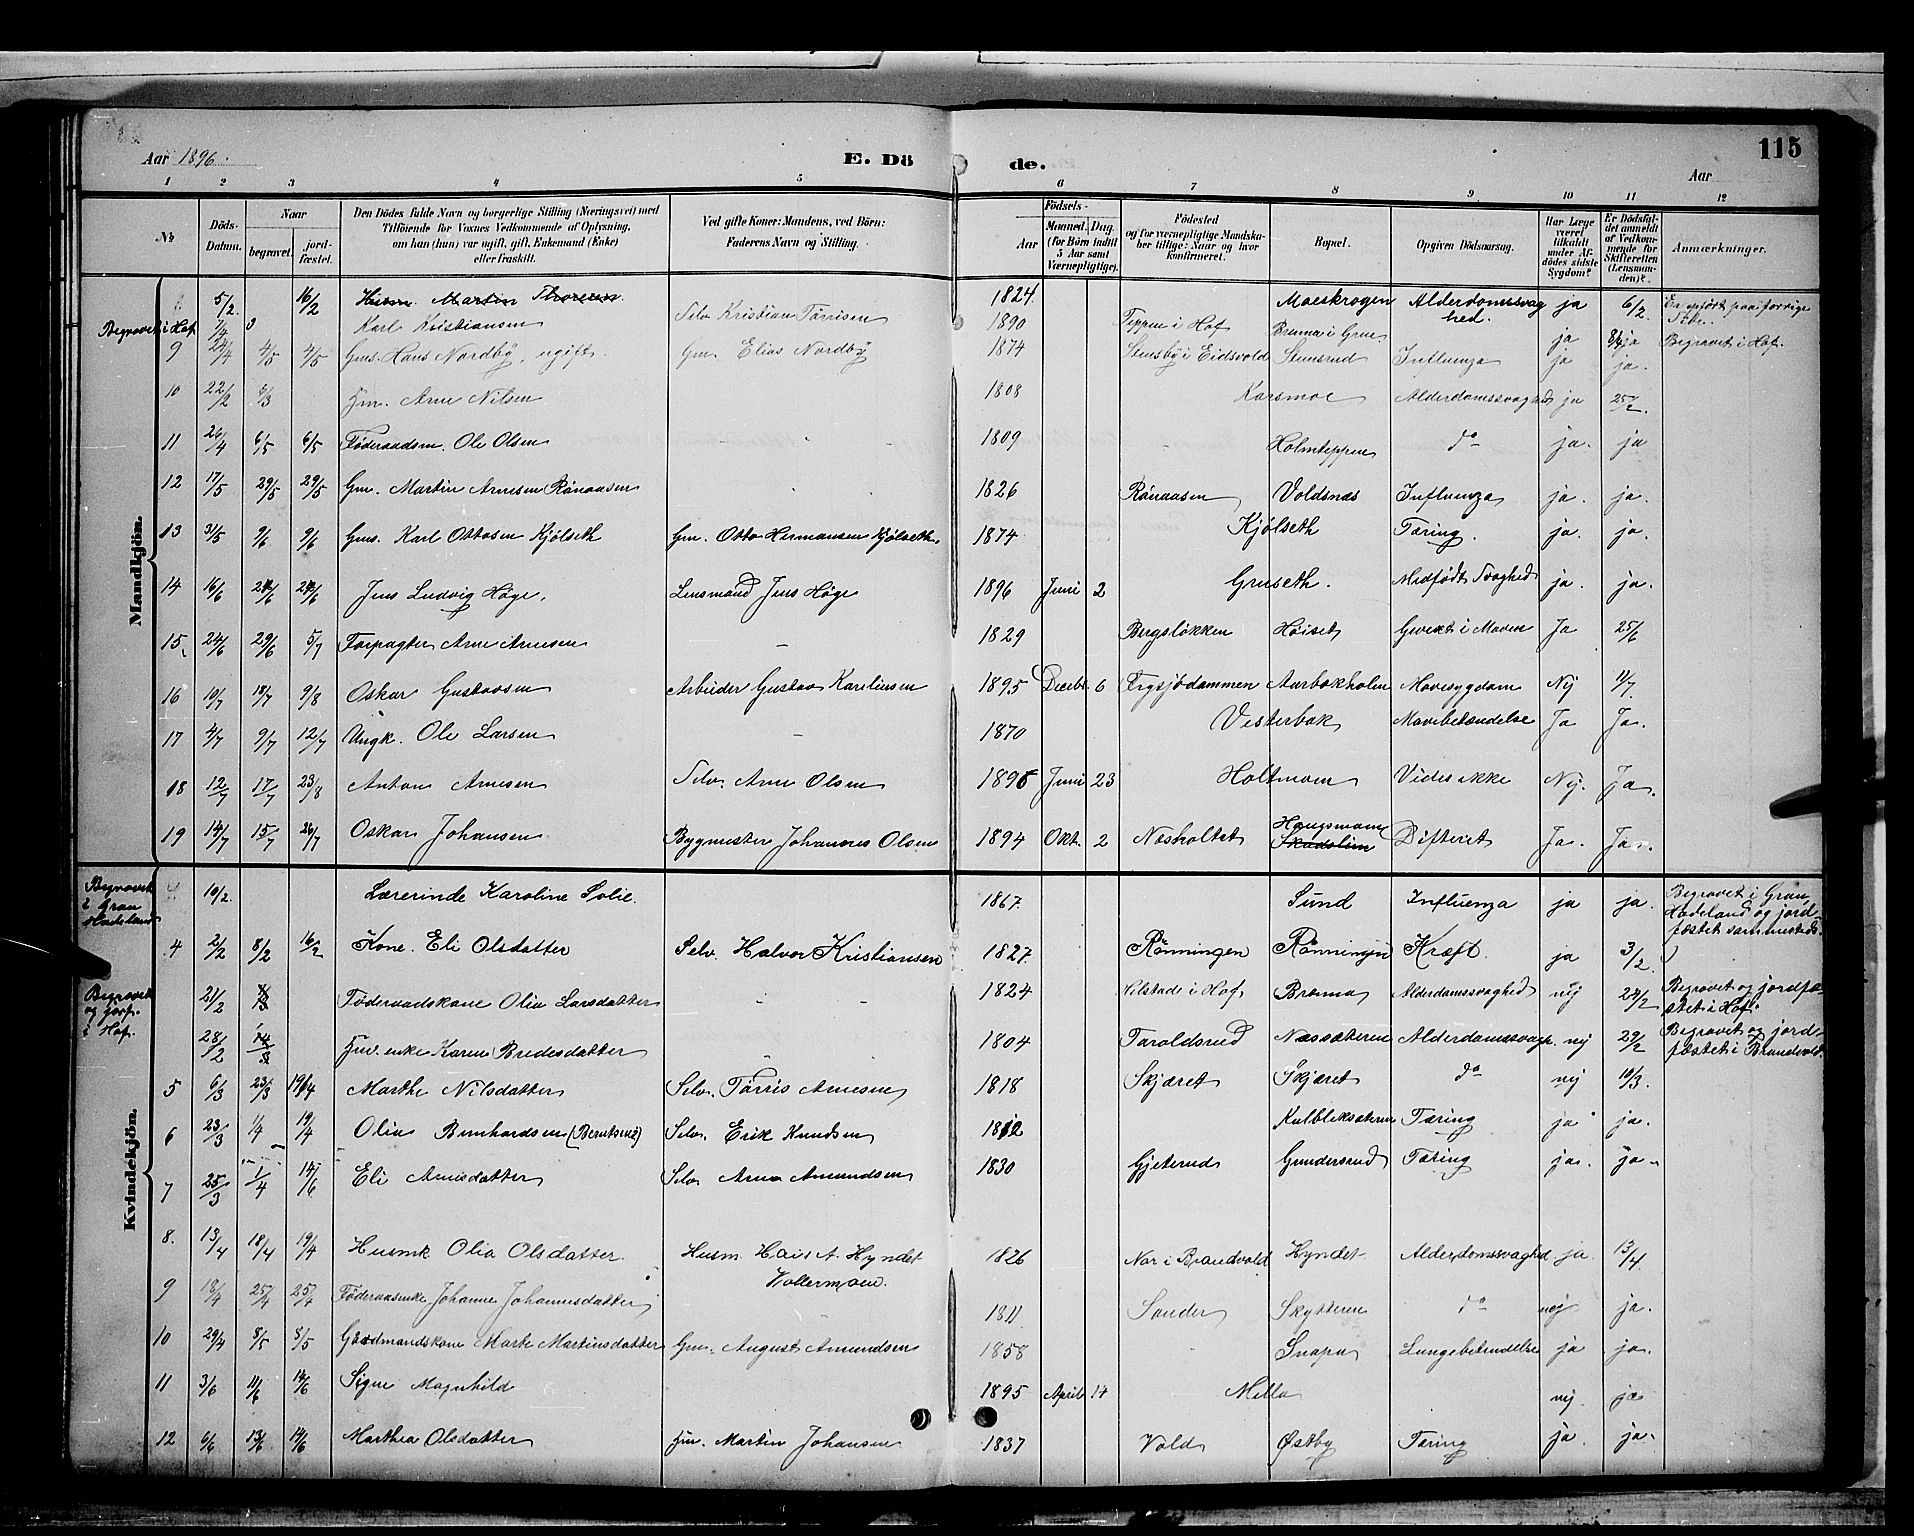 Aar 1896.
E. Dö de.
115
Aar
1 2 3 4 5 6 7 8 9 10 11 12
No
Döds-Datum.
Naar
begravet.
jord-fæstet.
Den Dödes fulde Navn og borgerlige Stilling (Næringsvei) med Tilföiende for Voxnes Vedkommende af Oplysning, om han (hun) var ugift, gift, Enkemand (Enke) eller fraskilt.
Ved gifte Koner: Mandens, ved Börn: Faderens Navn og Stilling.
Födsels-
Aar
Maaned. Dag. (for Börn indtil 5 Aar samt Værnepligtige).
Födested og for værnepligtige Mandska-ber tillige: Naar og hvor konfirmeret.
Bopæl.
Opgiven Dödsaarsag.
Har Læge været tilkaldt under Af-dödes sidste Sygdom?
Er Dödsfal-det anmeldt af Vedkom-mende for Skifteretten (Lensman-den)?
Anmærkninger.
Mandkjön.
5/2. 16/2 Husm. Martin Thoresen. 1824. Moeskrogen Alderdomssvaghed. ja 6/2. Er opført paa forrige Side.
Begravet i Hof. 7/4 Karl Kristiansen Selv. Kristian Tørrisen 1890 Teppen i Hof Bruma i Grue ja ja Begravet i Hof.
9 24/4 4/5 4/5 Gms. Hans Nordby, ugift. Gm. Elias Nordby 1874 Stensby i Eidsvold Stensrud Influenza ja ja.
10 22/2 6/3 Fm. Arne Nilsen 1808 Karsmoe Alderdomssvaghed ja 25/2.
11 26/4 6/5 6/5 Føderaadsm. Ole Olsen 1809 Holmteppen do ja. ja
12 17/5 29/5 29/5 Gm. Martin Arnesen Rønaasen 1826 Rønaasen Voldsnæs Influenza ja. ja.
13 31/5 9/6 9/6 Gms. Karl Ottosen Kjølseth Gm. Otto Hermansen Kjølseth. 1874 Kjølseth Tæring. ja. ja.
14 16/6 Jens Ludvig Høge. Lensmand Jens Høge 1896 Juni 2 Gruseth. Medfødt Svaghed ja. ja.
15. 24/6 29/6 5/7 Forpagter Arne Arnesen - 1829 Bergsløkken Høiset Gevext i Maven Ja 25/6
16 10/7 18/7 9/8 Oskar Gustavsen Arbeider Gustav Karelinsen 1895 Decbr. 6 Frysjødammen Aarbakholm Mavesygdom Nej 11/7.
17 4/7 9/7 12/7 Ungk. Ole Larsen - 1870 Vesterbak Mavebetændelse Ja Ja.
18 12/7 17/7 23/8 Anton Arnesen Selv. Arne Olsen 1895 Juni 23 Holtmoen Vides ikke Nej. Ja.
19 14/7 15/7 26/7 Oskar Johansen Bygmester Johannes Olsen 1894 Okt. 2 Næsholtet Haugsmoen Skadslien Difterit Ja. Ja.
Kvindekjön.
Begravet i Gran Hadeland 10/2. Lærerinde Karoline Solie. 1867. Sund Influenza ja ja. Begravet i Gran, Hadeland og jordfæstet sammesteds.
4 2/2 8/2 16/2 Kone. Eli Olsdatter Selv. Halvor Kristiansen 1827. Rønningen Rønningen Kræft. ja 3/2.
Begravet og jordf. i Hof. 21/2 Føderaadskone Olia Larsdatter - 1824 Nilstad i Hof Brenna Alderdomssvaghed nej 24/2 Begravet og jordfæstet i Hof.
28/2 14/3 Fm. enke Karen Bredesdatter - 1804 Taroldsrud Næssæteren Alderdomssvagh. nej 29/2 Begravet og jordfæstet i Brandvold.
5 6/3 23/3 19/4 Marthe Nilsdatter Selv. Tørris Arnesen 1818 Skjæret Skjæret do nej 10/3.
6 23/3 1/4 19/4 Olia Bernhardsen (Berntsen?) Selv. Erik Knudsen 1812 Kulbleksæteren Tæring ja ja.
7 25/3 1/4 14/6 Eli Arnesdatter Selv Arne Amundsen 1830 Gjeterud Gundersrud Tæring ja. ja.
8. 13/4 18/4 19/4 Husmk Olia Olsdatter. Husm. Hans A. Hyndet Vollermoen. 1826 Nor i Brandvold Hyndet Alderdomssvaghed ja 13/4.
9 18/4 25/4 25/4 Føderaasenke Johanne Johannesdatter 1811 Sander Skytteren do nej ja.
10 29/4 8/5 8/5 Gaardmandskone Marte Martinsdatter Gm. August Amundsen 1858 Snapa Lungebetendelse ja ja.
11 3/6 11/6 14/6 Signe Magnhild 1895 April 14 Mella nej. ja
12 6/6 13/6 14/6 Marthea Olsdatter Fm. Martin Johansen 1837 Vold Østby Tæring ja. ja.